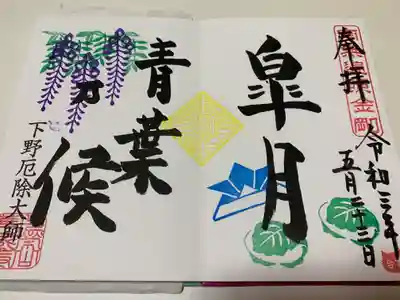 奉拝
令和三年
五月二十三日
皐月
青葉
候
下野厄除大師